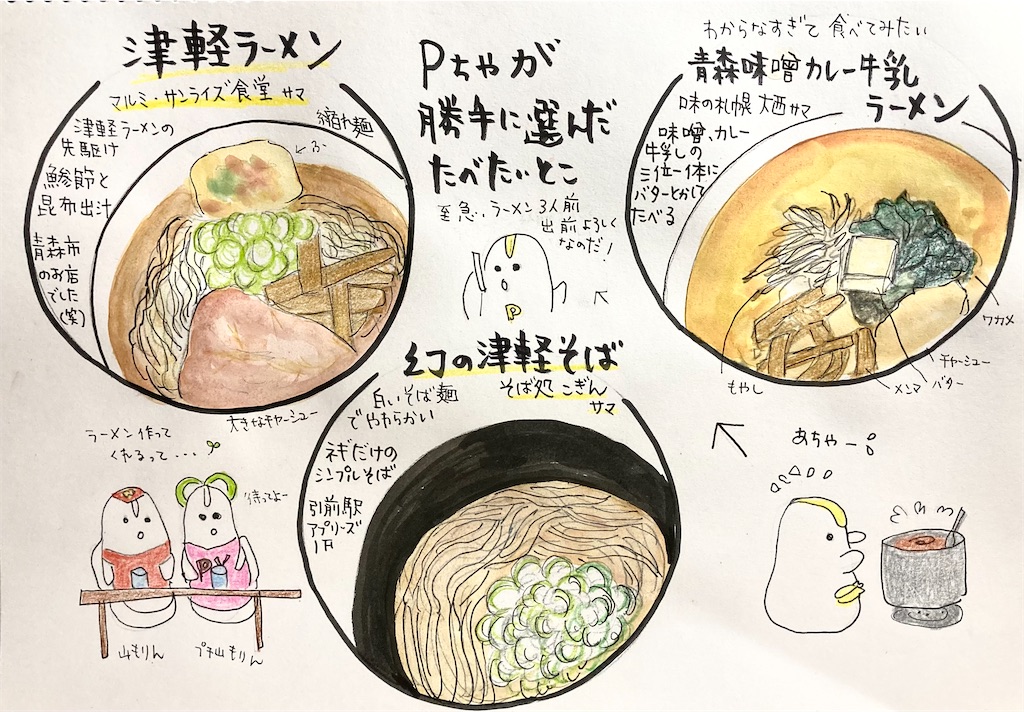 津軽ラーメン
マルミ・サンライズ食堂 サマ
津軽ラーメンの
先駆け
鯵節と
昆布出汁
青森市
のお店
でした
(笑)
縮れ麺
ふ
大きなチャーシュー
Pちゃが
勝手に選んだ
たべたいとこ
至急、ラーメン3人前
出前よろしく
なのだ!
P
わからなすぎて 食べてみたい
青森味噌カレー牛乳
ラーメン
味の札幌 大西サマ
味噌、カレー
牛乳しの
三位一体に
バターとかして
たべる
ワカメ
チャーシュー
バター
メンマ
もやし
幻の津軽そば
そば処 こぎん
サマ
白いそば麺
でやわらかい
ネギだけの
シンプルそば
弘前駅
アプリーズ
1F
ラーメン作って
くれるって...
待ってよー
P
山もりん
プチ山もりん
あちゃー